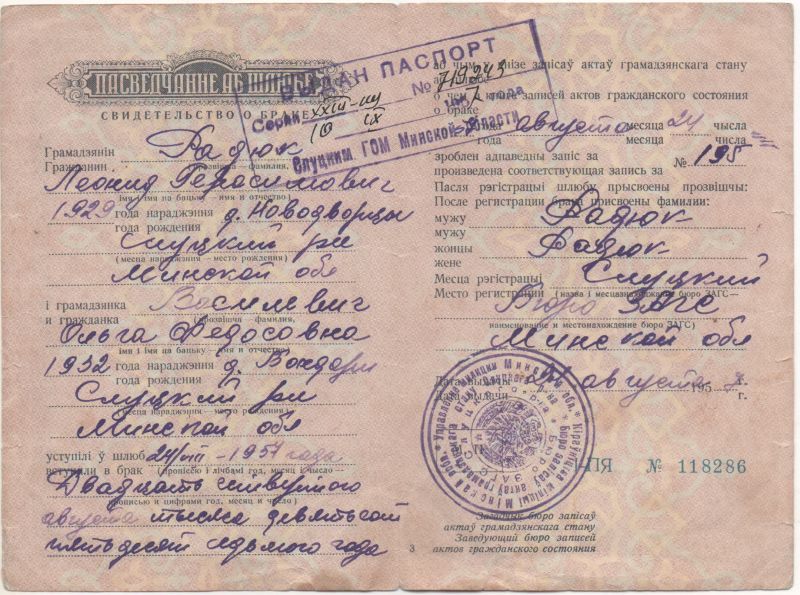 ПАСВЕДЧАННЕ АБ ШЛЮБЕ
СВИДЕТЕЛЬСТВО О БРАКЕ
Грамадзянін
Гражданин
Радюк
прозвішча — фамилия,
Леонид Герасимович
імя і імя па бацьку — имя и отчество
1929 года нараджэння д. Новодворцы
года рождения
Слуцкий р-н
(месца нараджэння — место рождения)
Минской обл
і грамадзянка
и гражданка
Василевич
прозвішча — фамилия,
Ольга Федосовна
імя і імя па бацьку — имя и отчество
1932 года нараджэння д.
года рождения
Слуцкий р-н
месца нараджэння — место рождения
Минской обл
уступілі ў шлюб 24/VIII - 1957 года
вступили в брак
пропіссю і лічбамі год, месяц і число —
Двадцать четвертого
прописью и цифрами год, месяц и число)
августа тысяча девятьсот
пятьдесят седьмого года
ВЫДАН ПАСПОРТ
Серии XXIII-
№ 719243
10 IX 1957 года
Слуцким ГОМ Минской области
аб чым у кнізе запісаў актаў грамадзянскага стану
аб шлюбе
о чем в книге записей актов гражданского состояния
о браке
года августа месяца 24 чысла
года месяца числа
зроблен адпаведны запіс за
произведена соответствующая запись за
№ 195
Пасля рэгістрацыі шлюбу прысвоены прозвішчы:
После регистрации брака присвоены фамилии:
мужу
мужу
Радюк
жонцы
жене
Радюк
Месца рэгістрацыі
Место регистрации
Слуцкий
(назва і месцазнаходжанне бюро ЗАГС —
Бюро ЗАГС
наименование и местонахождение бюро ЗАГС)
Минской обл
Дата выдачы
Дата выдачи
августа 1957 г.
г.
I-ПЯ № 118286
Загадчык бюро запісаў
актаў грамадзянскага стану
Заведующий бюро записей
актов гражданского состояния
3